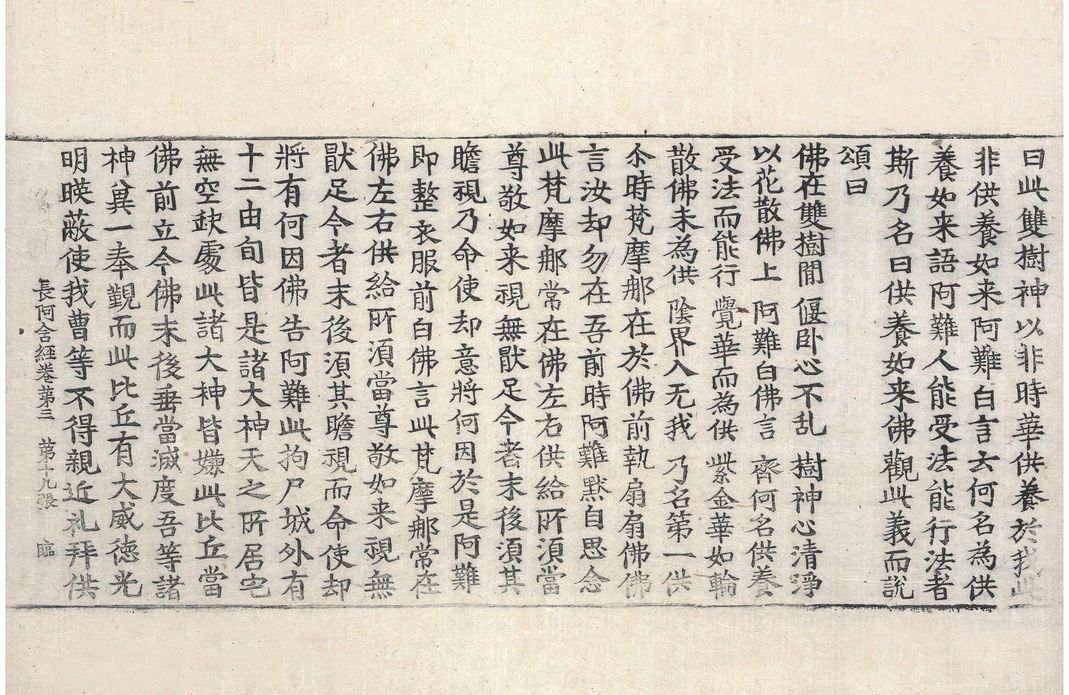 曰此雙樹神以非時華供養於我此
非供養如来阿難白言云何名為供
養如来語阿難人能受法能行法者
斯乃名曰供養如来佛觀此義而說
頌曰
佛在雙樹間 偃卧心不乱 樹神心清淨
以花散佛上 阿難白佛言 齊何名供養
受法而能行 覺華而為供 紫金華如輪
散佛未為供 陰界入无我 乃名第一供
尒時梵摩那在於佛前執扇扇佛佛
言汝却勿在吾前時阿難默自思念
此梵摩那常在佛左右供給所須當
尊敬如来視無猒足今者末後須其
瞻視乃命使却意將何因於是阿難
即整衣服前白佛言此梵摩那常在
佛左右供給所須當尊敬如来視無
猒足今者末後須其瞻視而命使却
將有何因佛告阿難此拘尸城外有
十二由旬皆是諸大神天之所居宅
無空缺處此諸大神皆嫌此比丘當
佛前立今佛末後垂當滅度吾等諸
神兾一奉覲而此比丘有大威德光
明暎蔽使我曹等不得親近礼拜供
長阿含經卷第三 第十九張 臨